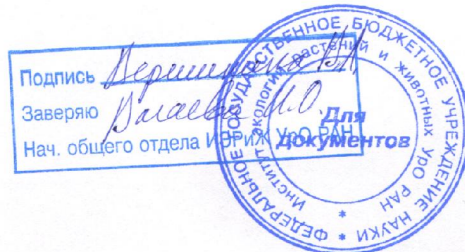 Подпись Вершинина В.Л.
Заверяю
Нач. общего отдела ИЭРиЖ УрО РАН
ФЕДЕРАЛЬНОЕ ГОСУДАРСТВЕННОЕ БЮДЖЕТНОЕ УЧРЕЖДЕНИЕ НАУКИ *
Институт экологии растений и животных УрО РАН *
Для
документов